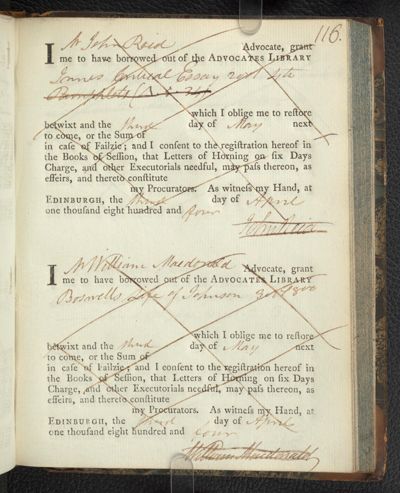 116.
I Mr John Reid Advocate, grant
me to have borrowed out of the ADVOCATES LIBRARY
Innes Critical Essay 2 vols
Pamphlets
which I oblige me to reſtore
betwixt and the third day of May next
to come, or the Sum of
in caſe of Failzie; and I conſent to the regiſtration hereof in
the Books of Seſſion, that Letters of Horning on ſix Days
Charge, and other Executorials needful, may paſs thereon, as
effeirs, and thereto conſtitute
my Procurators. As witneſs my Hand, at
EDINBURGH, the third day of April
one thouſand eight hundred and four
John Reid
I Mr William Macdonald Advocate, grant
me to have borrowed out of the ADVOCATES LIBRARY
Boswells Life of Johnson 3 vols 8vo
which I oblige me to reſtore
betwixt and the third day of May next
to come, or the Sum of
in caſe of Failzie; and I conſent to the regiſtration hereof in
the Books of Seſſion, that Letters of Horning on ſix Days
Charge, and other Executorials needful, may paſs thereon, as
effeirs, and thereto conſtitute
my Procurators. As witneſs my Hand, at
EDINBURGH, the third day of April
one thouſand eight hundred and four
William Macdonald